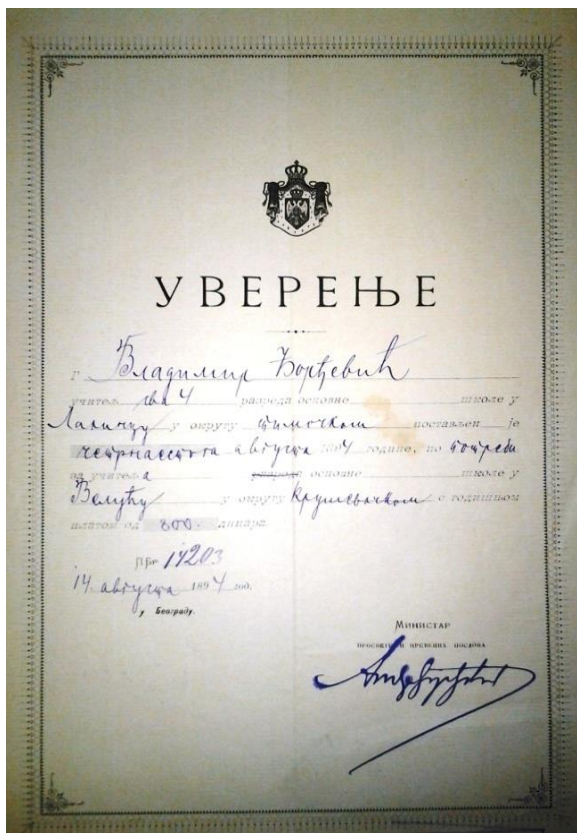 УВЕРЕЊЕ
Г. Владимир Ђорђевић
учитељ I и 4 разреда основне школе у
у округу тимочком постављен је
четрнаестога августа 1894 године, по потреби
за учитеља разреда основне школе у
Велућу у округу крушевачком с годишњом
платом од 800. динара.
ПБр 14203
14. августа 1894 год.
у Београду.
МИНИСТАР
ПРОСВЕТЕ И ЦРКВЕНИХ ПОСЛОВА